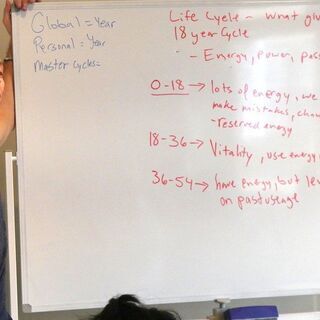 Global = Year
Personal = Year
Master Cycles=
Life Cycle - what
18 year Cycle
- Energy, Power,
0-18 → lots of energy, we
make mistakes,
-reserved energy
18-36 → Vitality, use energy
36-54 → have energy, but
on past useage